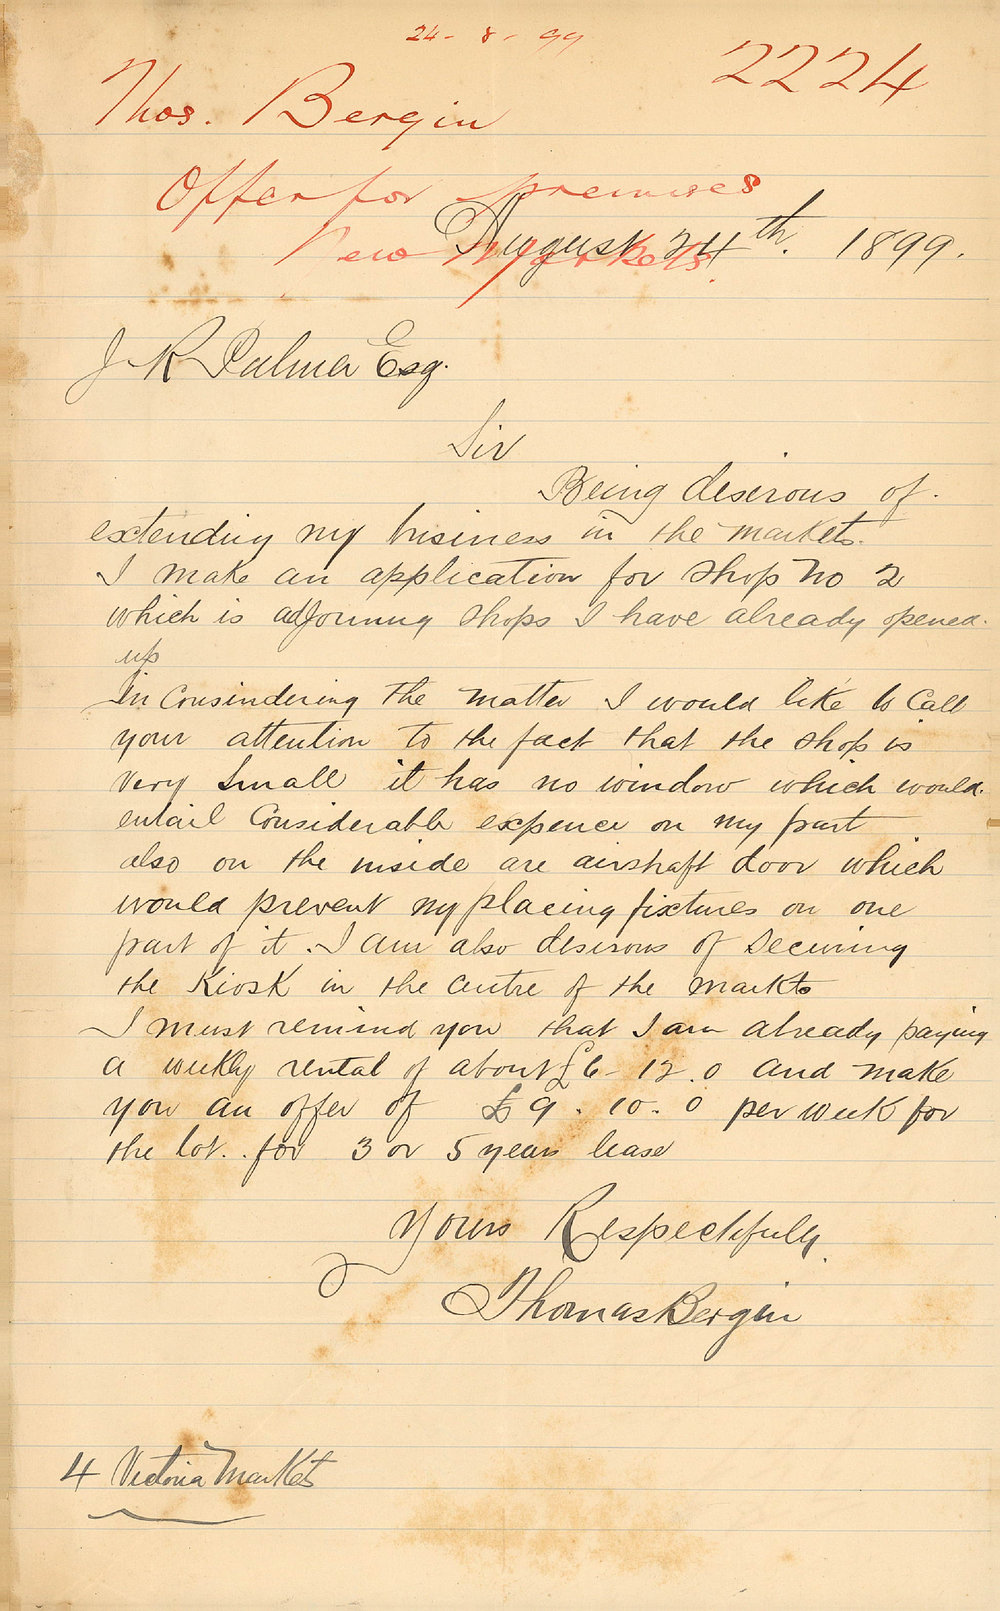 24 - 8 - 99
2224
Thos. Bergin
Offer for premises
New Markets.
August 24th. 1899.
J R Palmer Esq.
Sir
Being desirous of.
extending my business in the markets.
I make an application for shop No 2
which is adjoining shops I have already opened.
up
In Consindering the matter I would like to Call
your attention to the fact that the shop is
very small it has no window which would.
entail Considerable expence on my part
also on the inside are airshaft door which
would prevent my placing fixtures on one
part of it. I am also desirous of Securing
the Kiosk in the centre of the markts
I must remind you that I am already paying
a weekly rental of about £6 - 12.0 and make
you an offer of £9. 10. 0 per week for
the lot. for 3 or 5 years lease
Yours Respectfully.
Thomas Bergin
4 Victoria Markets